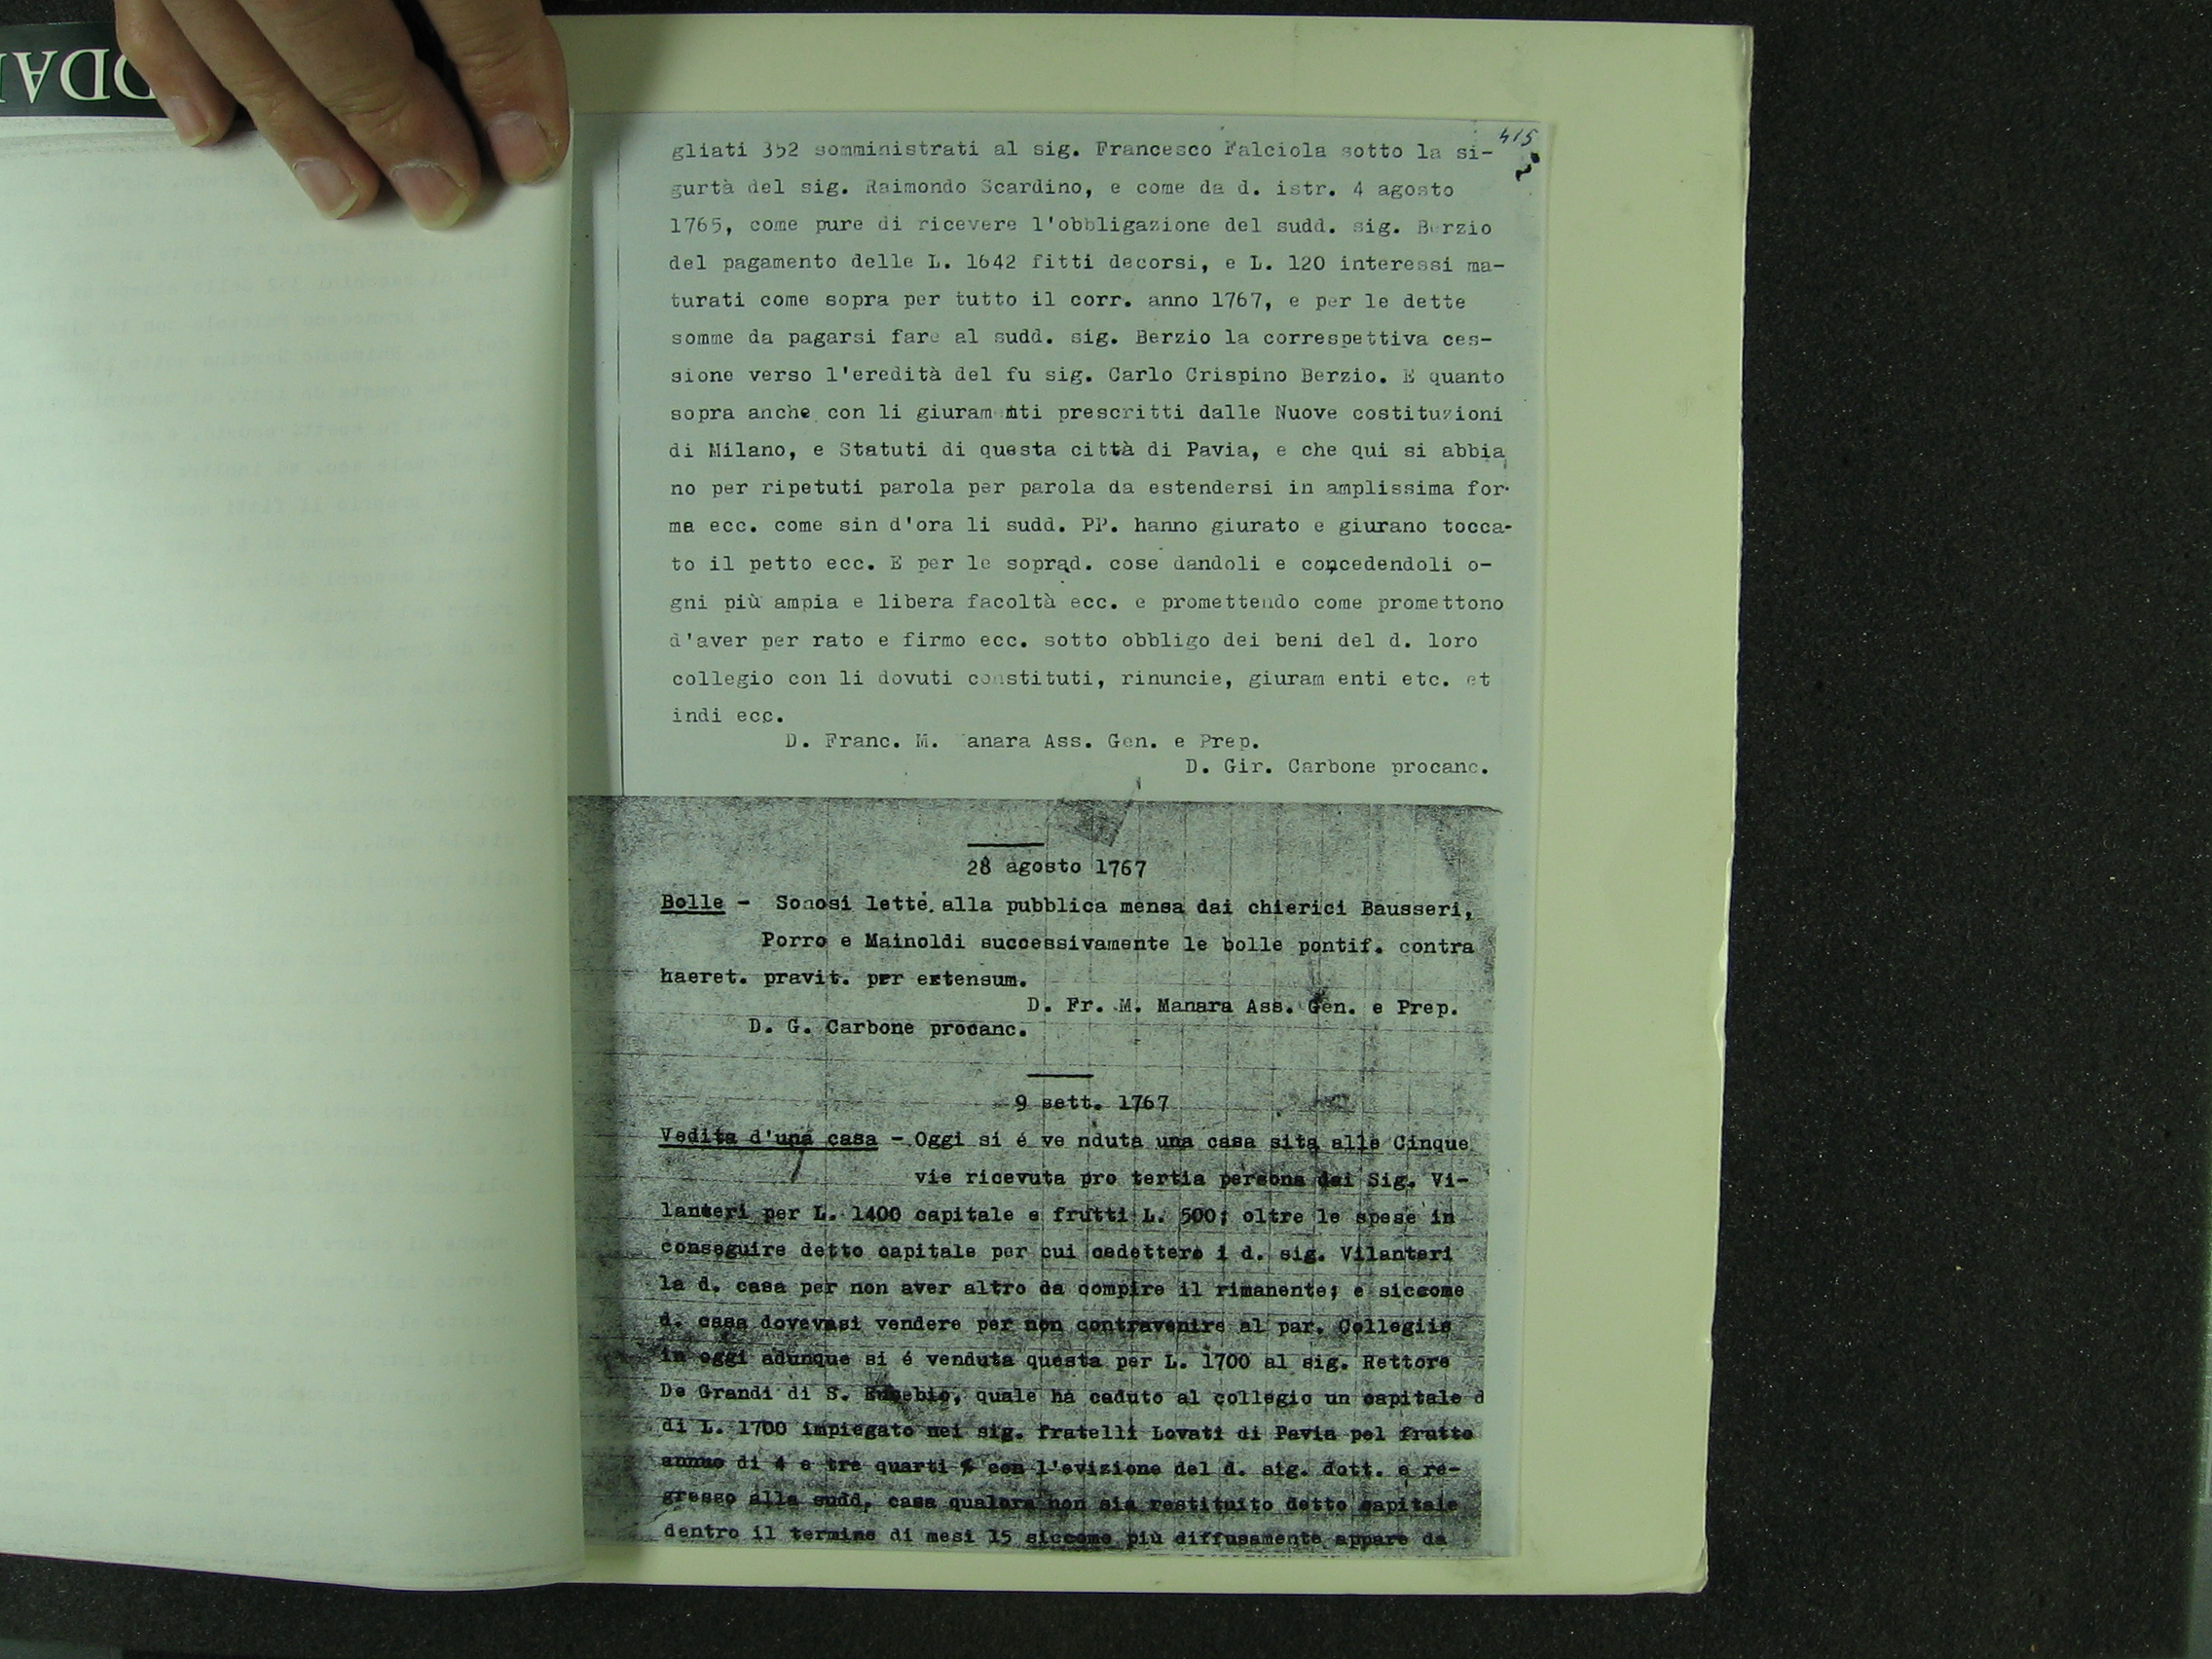 415
gliati 352 somministrati al sig. Francesco Falciola sotto la si-
gurtà del sig. Raimondo Scardino, e come da d. istr. 4 agosto
1765, come pure di ricevere l'obbligazione del sudd. sig. Berzio
del pagamento delle L. 1642 fitti decorsi, e L. 120 interessi ma-
turati come sopra per tutto il corr. anno 1767, e per le dette
somme da pagarsi fare al sudd. sig. Berzio la correspettiva ces-
sione verso l'eredità del fu sig. Carlo Crispino Berzio. E quanto
sopra anche con li giuramenti prescritti dalle Nuove costituzioni
di Milano, e Statuti di questa città di Pavia, e che qui si abbia
no per ripetuti parola per parola da estendersi in amplissima for-
ma ecc. come sin d'ora li sudd. PP. hanno giurato e giurano tocca-
to il petto ecc. E per le soprad. cose dandoli e concedendoli o-
gni più ampia e libera facoltà ecc. e promettendo come promettono
d'aver per rato e firmo ecc. sotto obbligo dei beni del d. loro
collegio con li dovuti constituti, rinuncie, giuram enti etc. et
indi ecc.
D. Franc. M. anara Ass. Gen. e Prep.
D. Gir. Carbone procanc.
28 agosto 1767
Bolle - Sonosi lette alla pubblica mensa dai chierici Bausseri,
Porro e Mainoldi successivamente le bolle pontif. contra
haeret. pravit. per extensum.
D. Fr. M. Manara Ass. Gen. e Prep.
D. G. Carbone procanc.
9 sett. 1767
Vedita d'una casa - Oggi si é ve nduta una casa sita alle Cinque
vie ricevuta pro tertia persona dai Sig. Vi-
lanteri per L. 1400 capitale e frutti L. 500; oltre le spese in
conseguire detto capitale per cui cedettero i d. sig. Vilanteri
la d. casa per non aver altro da compire il rimanente; e siccome
d. casa dovevasi vendere per non contravenire al par. Collegiis
in oggi adunque si é venduta questa per L. 1700 al sig. Rettore
De Grandi di S. Eusebio, quale ha caduto al collegio un capitale d
di L. 1700 impiegato nei sig. fratelli Lovati di Pavia pel frutto
annuo di 4 e tre quarti % con l'evizione del d. sig. dott. e re-
gresso alla sudd. casa qualora non sia restituito detto capitale
dentro il termine di mesi 15 siccome più diffusamente appare da